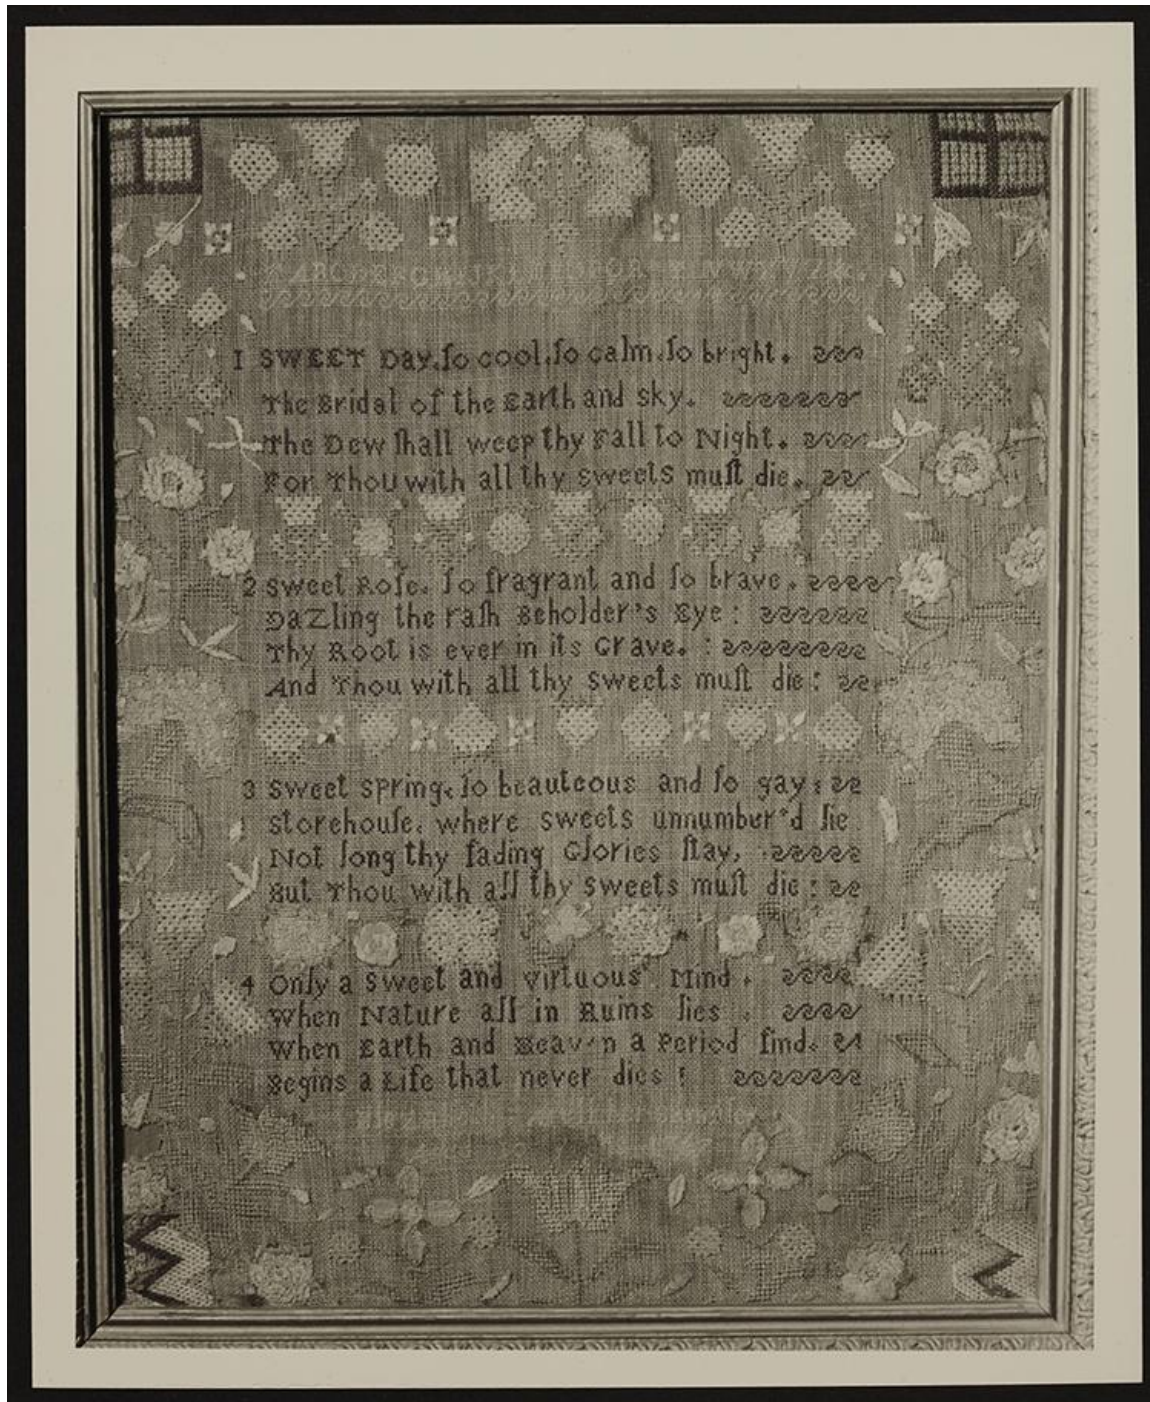 ABCDEFGHIJKLMNOPQR
1 SWEET Day, ſo cool, ſo calm, ſo bright.
The Bridal of the Earth and Sky.
The Dew ſhall weep thy Fall to Night.
For Thou with all thy Sweets muſt die.
2 Sweet Roſe. ſo fragrant and ſo brave.
DaZling the raſh Beholder's Eye:
Thy Root is ever in its Grave. :
And Thou with all thy Sweets muſt die:
3 Sweet Spring, ſo beauteous and ſo gay:
Storehouſe, where Sweets unnumber'd lie
Not long thy fading Glories ſtay,
But Thou with all thy Sweets muſt die:
4 Only a Sweet and Virtuous Mind.
When Nature all in Ruins lies.
When Earth and Heaven a Period find.
Begins a Life that never dies: